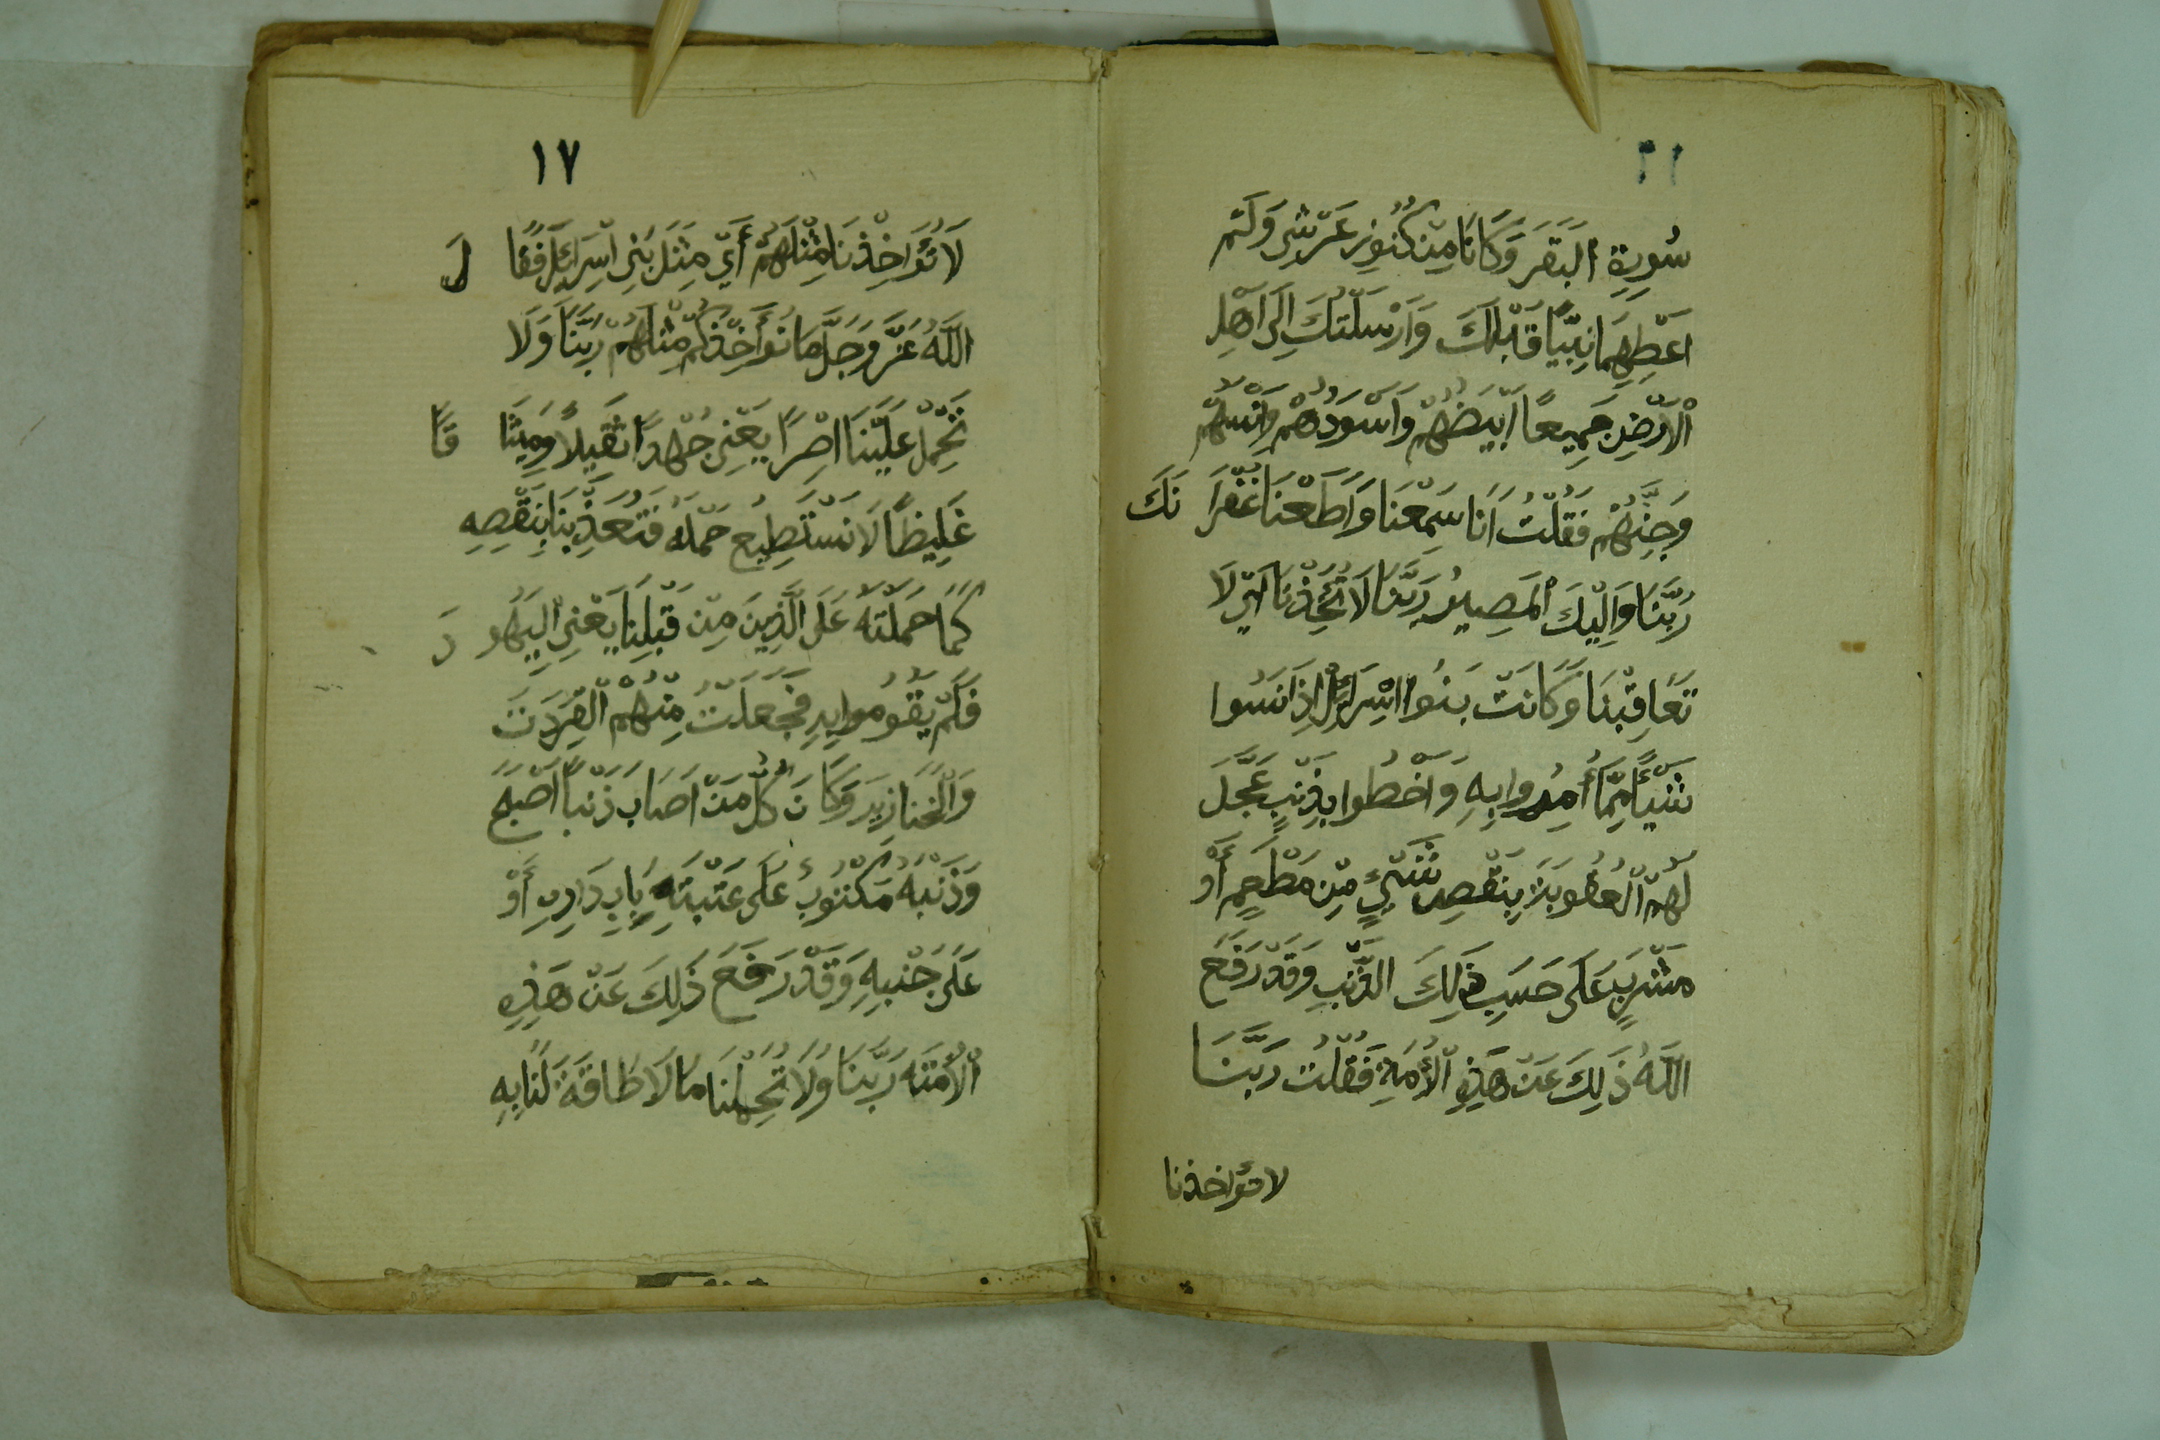 سُورَةِ الْبَقَرَ وَكَانَا مِنْ كُنُوزِ عَرْشِي وَلَمْ
اَعْطِهِمَا نَبِيًّا قَبْلَكَ وَاَرْسَلْتُكَ اِلَى اَهْلِ
الْاَرْضِ جَمِيعًا اَبْيَضُهُمْ وَاَسْوَدُهُمْ وَاِنْسُهُمْ
وَجِنُّهُمْ فَقُلْتُ اَنَا سَمِعْنَا وَاَطَعْنَا غُفْرَانَكَ
رَبَّنَا وَاِلَيْكَ الْمَصِيرُ رَبَّنَا لَا تُؤَخِذْنَا اَيْ لَا
تَعَاقِبْنَا وَكَانَتْ بَنُوا اِسْرَائِلَ اِذَا نَسُوا
شَيْئًا مِمَّا أُمِرُوا بِهِ وَاَخْطُوا بِذَنْبٍ عَجَّلَ
لَهُمْ الْعُقُوبَةَ بِنَقْصِ شَيْءٍ مِنْ مَطْعَمٍ أَوْ
مَشْرَبٍ عَلَى حَسَبِ ذَلِكَ الذَّنْبِ وَقَدْ رَفَعَ
اللَّهُ ذَلِكَ عَنْ هَذِهِ الْأُمَّةِ فَقُلْتُ رَبَّنَا
لا تؤاخذنا
١٧
لَا تُؤَاخِذْنَا مِثْلَهُمْ أَيْ مِثْلَ بَنِي اِسْرَائِلَ فَقَالَ
اللَّهُ عَزَّ وَجَلَّ مَا نُؤَاخِذُكُمْ مِثْلَهُمْ رَبَّنَا وَلَا
تَحْمِلْ عَلَيْنَا اِصْرًا يَعْنِي جُهْدًا ثَقِيلًا وَمِيثَاقًا
غَلِيظًا لَا نَسْتَطِيعُ حَمْلَهُ فَتُعَذِّبُنَا بِنَقْصِهِ
كَمَا حَمَلْتَهُ عَلَى الَّذِينَ مِنْ قَبْلِنَا يَعْنِي الْيَهُودَ
فَلَمْ يَقُومُوا بِهِ فَجَعَلْتَ مِنْهُمْ الْقِرَدَتَ
وَالْخَنَازِيرَ وَكَانَ كُلُّ مَنْ اَصَابَ ذَنْبًا اَصْبَحَ
وَذَنْبُهُ مَكْتُوبٌ عَلَى عَتْبَتِهِ بَابِ دَارِهِ أَوْ
عَلَى جَنْبِهِ وَقَدْ رَفَعَ ذَلِكَ عَنْ هَذِهِ
الْأُمَّتِهِ رَبَّنَا وَلَا تُحَمِّلْنَا مَا لَا طَاقَةَ لَنَا بِهِ